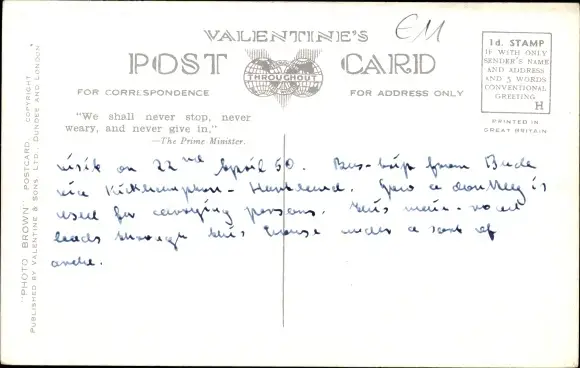 VALENTINE'S
EM
POST CARD
THROUGHOUT
FOR CORRESPONDENCE
FOR ADDRESS ONLY
1d. STAMP
IF WITH ONLY
SENDER'S NAME
AND ADDRESS
AND 5 WORDS
CONVENTIONAL
GREETING
H
PRINTED IN
GREAT BRITAIN
"We shall never stop, never
weary, and never give in,"
—The Prime Minister.
visit on 22nd April 50. Bus-trip from Bude
via - a donkey is
used for carrying persons. This main-road
leads through this house under a sort of
"PHOTO BROWN" POSTCARD. COPYRIGHT.
PUBLISHED BY VALENTINE & SONS, LTD., DUNDEE AND LONDON